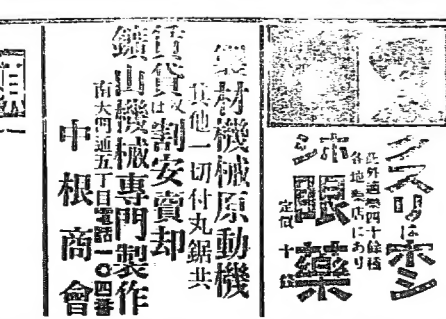 クスリはホシ
此外適薬四十餘種
各地薬店にあり
ホシ眼藥
定價 十錢
製材機械原動機
其他一切付丸鋸共
賃貸は又割安賣却
鑛山機械專門製作
南大門通五丁目電話一〇四番
中根商會